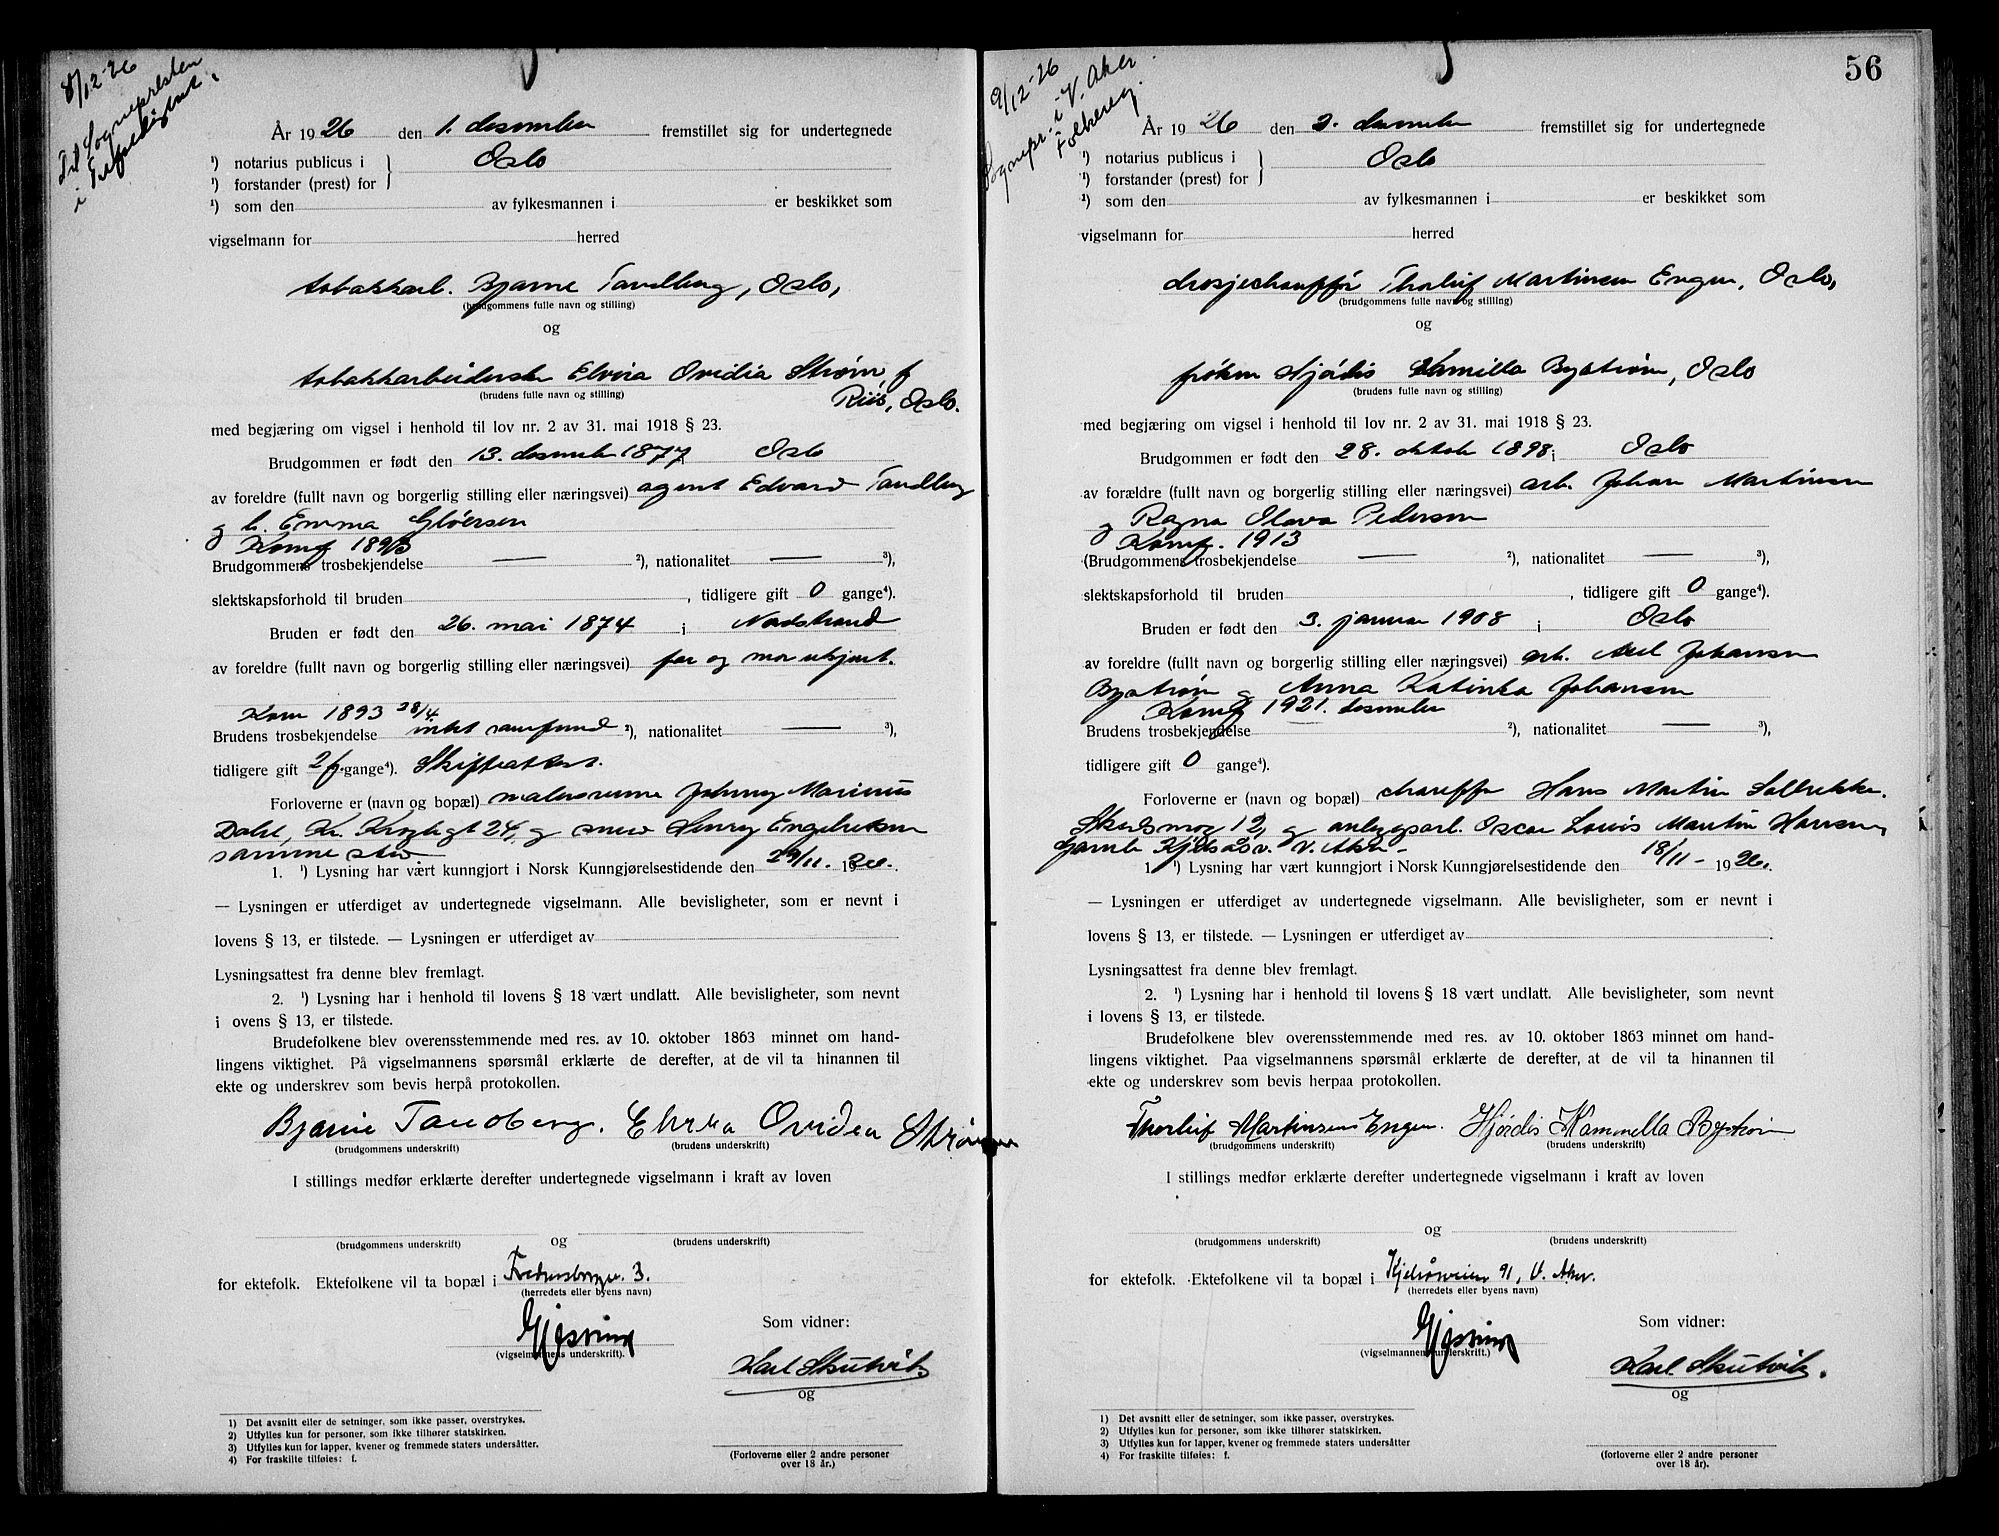 8/12-26
Til Sognepresten
i
År 1926 den 1. desember fremstillet sig for undertegnede
¹) notarius publicus i } Oslo
¹) forstander (prest) for
¹) som den av fylkesmannen i er beskikket som
vigselmann for herred
tobakkarb. Bjarne Tandberg, Oslo,
(brudgommens fulle navn og stilling)
og
tobakkarbeiderske Elvira Ovidia Strøm f
(brudens fulle navn og stilling) Riis, Oslo.
med begjæring om vigsel i henhold til lov nr. 2 av 31. mai 1918 § 23.
Brudgommen er født den 13. desember 1877 Oslo
av foreldre (fullt navn og borgerlig stilling eller næringsvei) agent Edvard Tandberg
og h. Emma Gløersen
Konf 1893
Brudgommens trosbekjendelse — ²), nationalitet — ³),
slektskapsforhold til bruden , tidligere gift 0 gange⁴).
Bruden er født den 26. mai 1874 i Nordstrand
av foreldre (fullt navn og borgerlig stilling eller næringsvei) far og mor ukjent.
Kom 1893 28/4
Brudens trosbekjendelse intet samfund ²), nationalitet — ³),
tidligere gift 2 f. gange⁴). Skifteattest.
Forloverne er (navn og bopæl) malersvenn Johnny Marinus
Dahl, Kr. Kroghsgt 24, og Henry Engebretsen
samme sted.
1. ¹) Lysning har vært kunngjort i Norsk Kunngjørelsestidende den 29/11. 1926.
— Lysningen er utferdiget av undertegnede vigselmann. Alle bevisligheter, som er nevnt i
lovens § 13, er tilstede. — Lysningen er utferdiget av
Lysningsattest fra denne blev fremlagt.
2. ¹) Lysning har i henhold til lovens § 18 vært undlatt. Alle bevisligheter, som nevnt
i ovens § 13, er tilstede.
Brudefolkene blev overensstemmende med res. av 10. oktober 1863 minnet om hand-
lingens viktighet. På vigselmannens spørsmål erklærte de derefter, at de vil ta hinannen til
ekte og underskrev som bevis herpå protokollen.
Bjarne Tandberg. Elvira Ovidia Strøm
(brudgommens underskrift) (brudens underskrift)
I stillings medfør erklærte derefter undertegnede vigselmann i kraft av loven
og
(brudgommens underskrift) (brudens underskrift)
for ektefolk. Ektefolkene vil ta bopæl i Fredensborgv. 3.
(herredets eller byens navn)
Som vidner:
(vigselmannens underskrift).
Karl Skutvik
og
1) Det avsnitt eller de setninger, som ikke passer, overstrykes.
2) Utfylles kun for personer, som ikke tilhører statskirken.
3) Utfylles kun for lapper, kvener og fremmede staters undersåtter.
4) For fraskilte tilføies: f.
(Forloverne eller 2 andre personer
over 18 år.)
56
9/12-26
Sognepr. i V. Aker
Folkereg.
År 1926 den 2. desember fremstillet sig for undertegnede
¹) notarius publicus i } Oslo
¹) forstander (prest) for
¹) som den av fylkesmannen i er beskikket som
vigselmann for herred
drosjechauffør Thorleif Martinsen Engen, Oslo,
(brudgommens fulle navn og stilling)
og
frøken Hjørdis Kamilla Byström, Oslo
(brudens fulle navn og stilling)
med begjæring om vigsel i henhold til lov nr. 2 av 31. mai 1918 § 23.
Brudgommen er født den 28. oktober 1898 i Oslo
av forældre (fullt navn og borgerlig stilling eller næringsvei) arb. Johan Martinsen
og Ragna Olava Pedersen
Konf. 1913
(Brudgommens trosbekjendelse — ²), nationalitet — ³),
slektskapsforhold til bruden , tidligere gift 0 gange⁴).
Bruden er født den 3. januar 1908 i Oslo
av foreldre (fullt navn og borgerlig stilling eller næringsvei) arb. Axel Johansen
Byström og Anna Katinka Johansen
Konf 1921. desember
Brudens trosbekjendelse — ²), nationalitet — ³),
tidligere gift 0 gange⁴).
Forloverne er (navn og bopæl) chauffør Hans Martin
12, og anleggsarb. Oscar Louis Martin Hansen,
Gamle Kjelsåsv. V. Aker-
1. ¹) Lysning har vært kunngjort i Norsk Kunngjørelsestidende den 18/11- 1926.
— Lysningen er utferdiget av undertegnede vigselmann. Alle bevisligheter, som er nevnt i
lovens § 13, er tilstede. — Lysningen er utferdiget av
Lysningsattest fra denne blev fremlagt.
2. ¹) Lysning har i henhold til lovens § 18 vært undlatt. Alle bevisligheter, som nevnt
i lovens § 13, er tilstede.
Brudefolkene blev overensstemmende med res. av 10. oktober 1863 minnet om hand-
lingens viktighet. Paa vigselmannens spørsmål erklærte de derefter, at de vil ta hinannen til
ekte og underskrev som bevis herpaa protokollen.
Thorleif Martinsen Engen. Hjørdis Kammella Byström
(brudgommens underskrift) (brudens underskrift)
I stillings medfør erklærte derefter undertegnede vigselmann i kraft av loven
og
(brudgommens underskrift) (brudens underskrift)
for ektefolk. Ektefolkene vil ta bopæl i Kjelsåsveien 91, V. Aker.
(herredets eller byens navn)
Som vidner:
(vigselmannens underskrift.)
Karl Skutvik.
og
1) Det avsnitt eller de setninger, som ikke passer, overstrykes.
2) Utfylles kun for personer, som ikke tilhører statskirken.
3) Utfylles kun for lapper, kvener og fremmede staters undersåtter
4) For fraskilte tilføies: f.
(forloverne eller 2 andre personer
over 18 år).